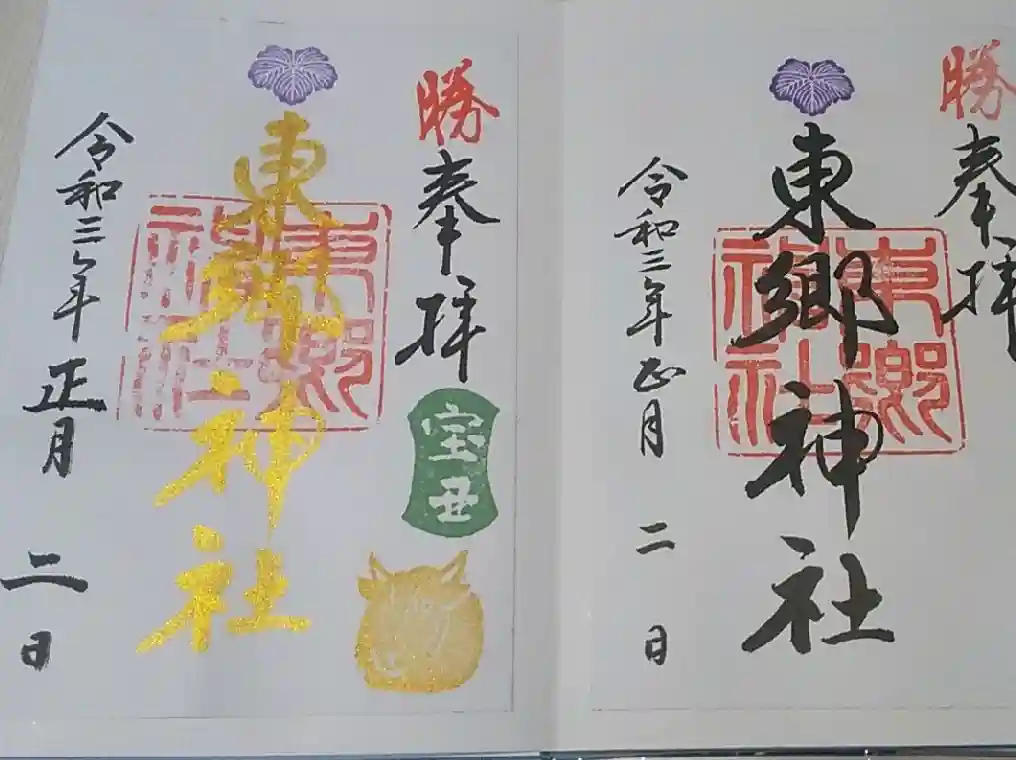 勝
奉拝
東郷神社
東郷神社
令和三年正月二日
勝
奉拝
宝丑
東郷神社
東郷神社
令和三年正月二日